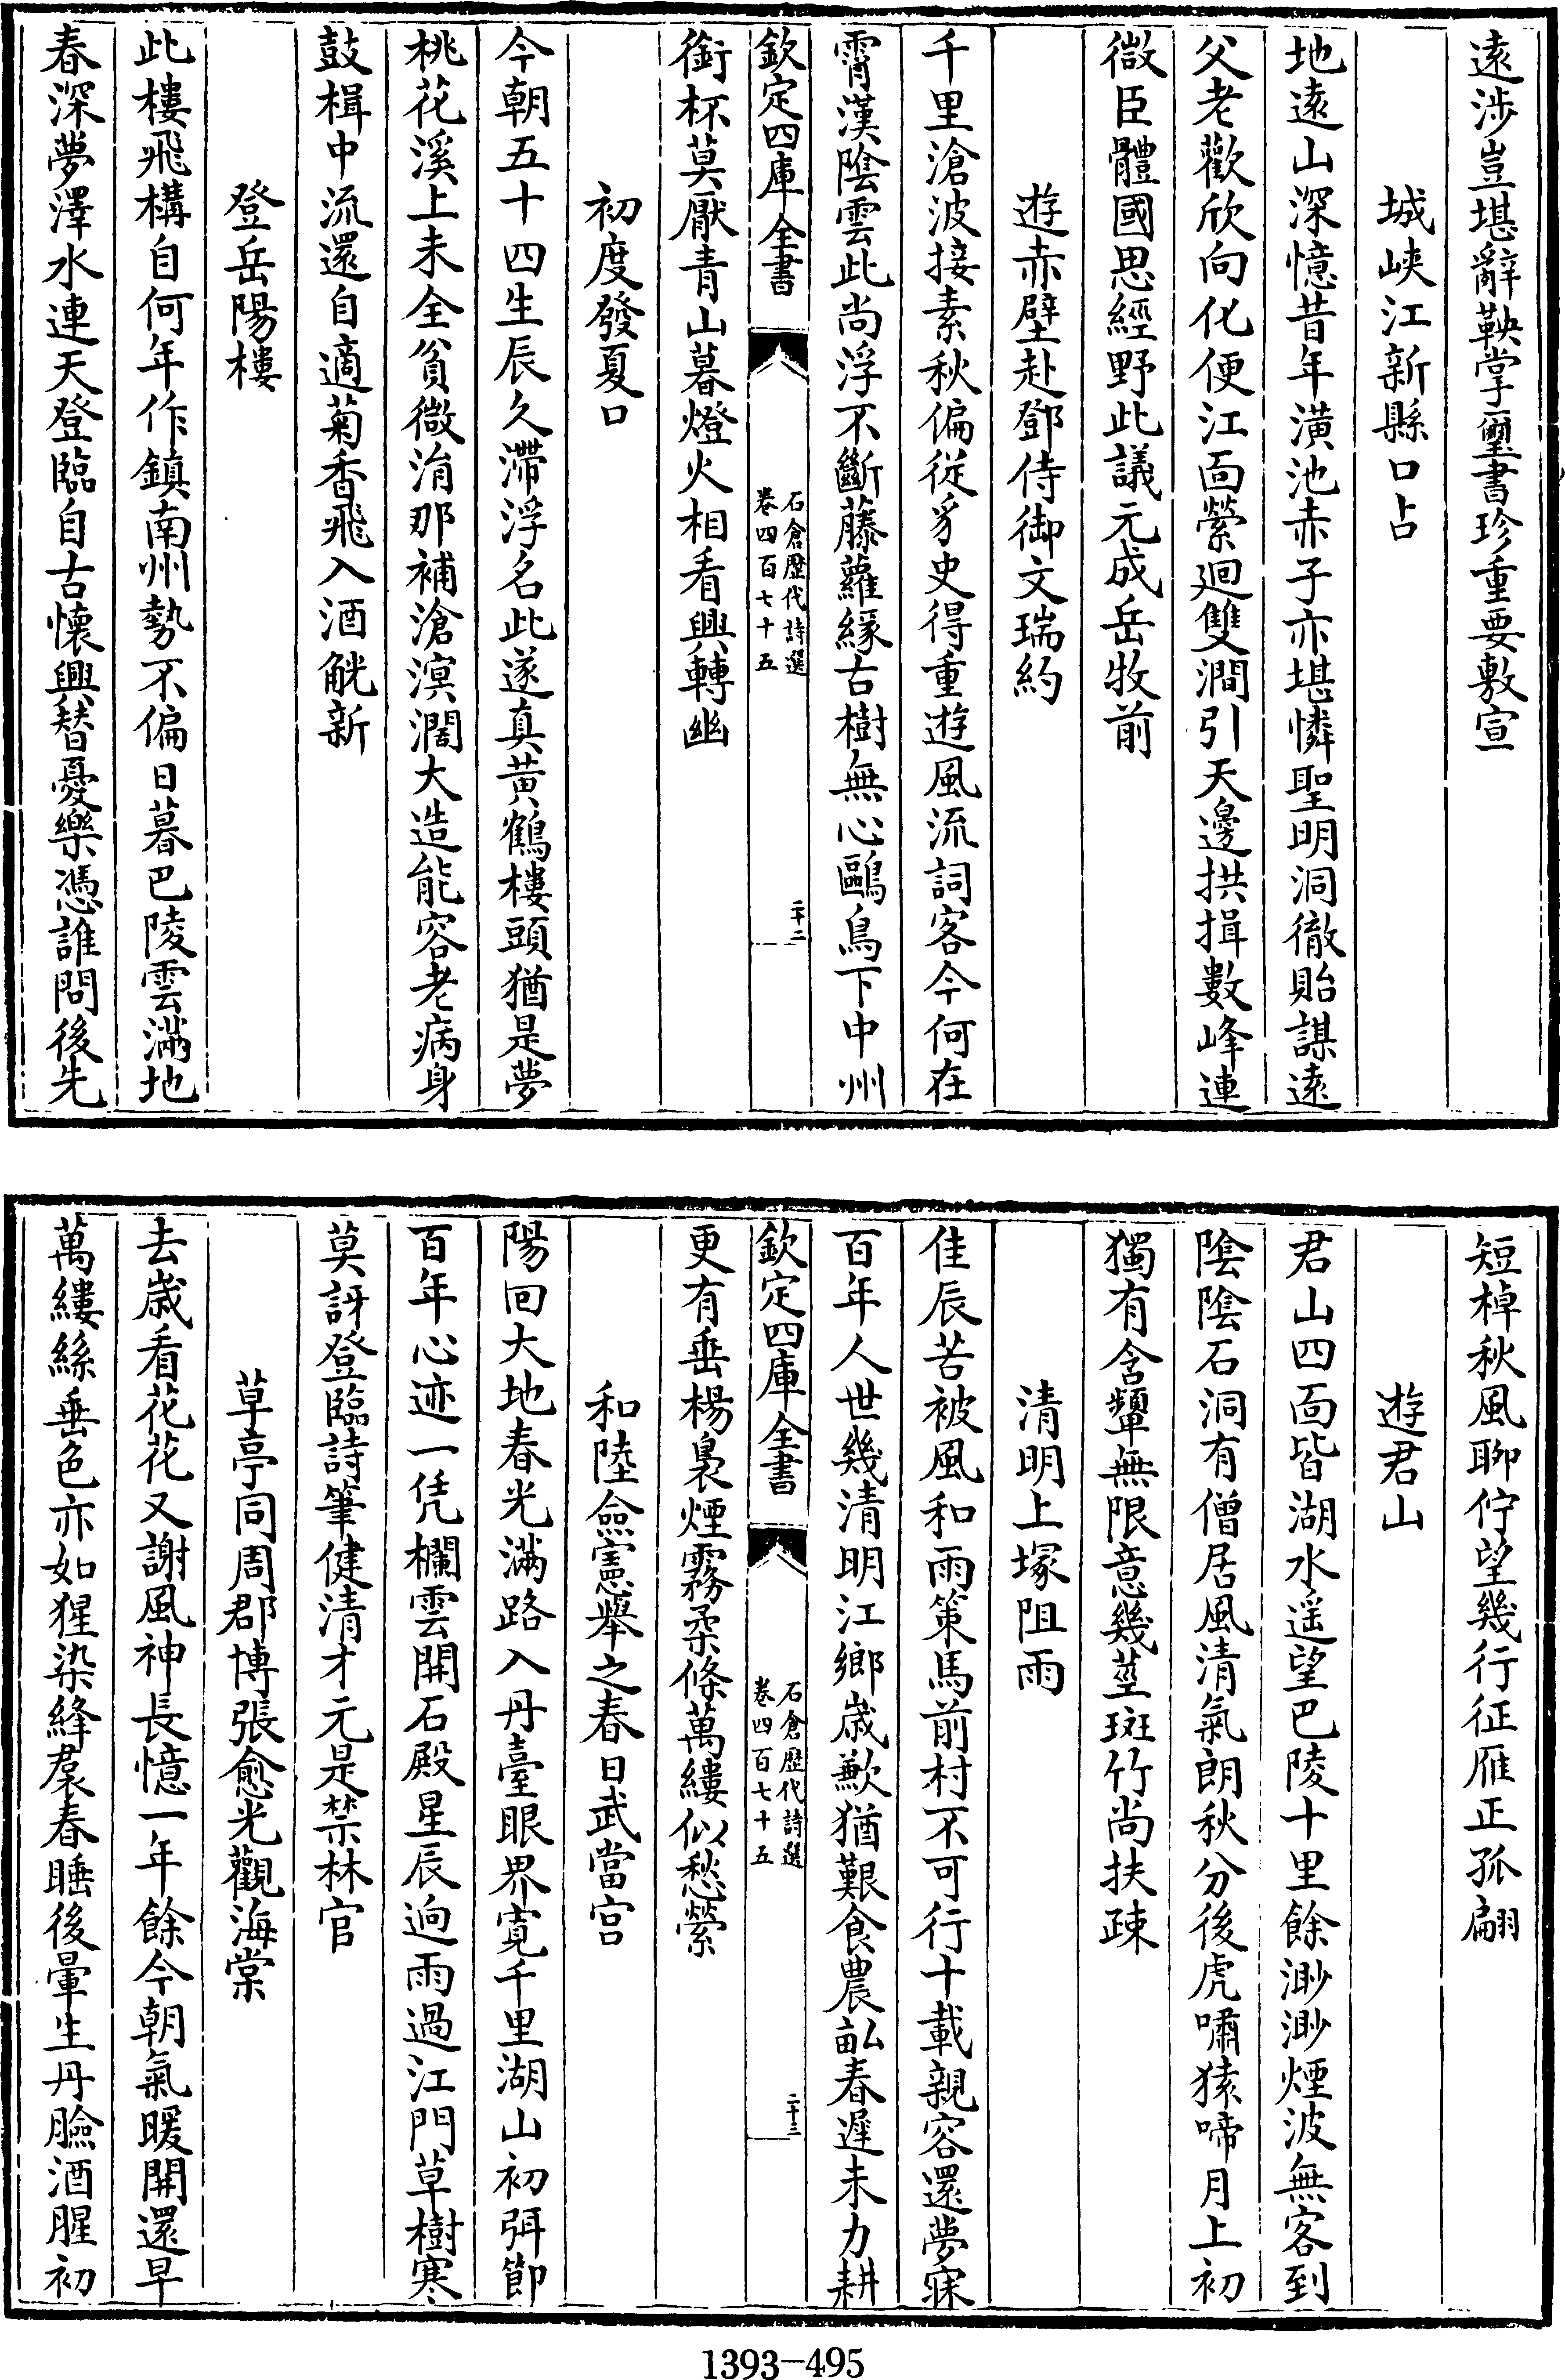 遠涉豈堪辭鞅掌璽書珍重要敷宣
城峽江新縣口占
地遠山深憶昔年潢池赤子亦堪憐聖明洞徹貽謀遠
父老歡欣向化便江面縈迴雙澗引天邊拱揖數峰連
微臣體國思經野此議元成岳牧前
遊赤壁赴鄧侍御文瑞約
千里滄波接素秋偏從豸史得重遊風流詞客今何在
霄漢陰雲此尚浮不斷藤蘿緣古樹無心鷗鳥下中州
欽定四庫全書
石倉歷代詩選
卷四百七十五
二十二
銜杯莫厭青山暮燈火相看興轉幽
初度發夏口
今朝五十四生辰久滯浮名此遂真黃鶴樓頭猶是夢
桃花溪上未全貧微涓那補滄溟濶大造能容老病身
鼓楫中流還自適菊香飛入酒觥新
登岳陽樓
此樓飛構自何年作鎮南州勢不偏日暮巴陵雲滿地
春深夢澤水連天登臨自古懷興替憂樂憑誰問後先
短棹秋風聊佇望幾行征雁正孤翩
遊君山
君山四面皆湖水遥望巴陵十里餘渺渺煙波無客到
陰陰石洞有僧居風清氣朗秋分後虎嘯猿啼月上初
獨有含顰無限意幾莖斑竹尚扶疎
清明上塚阻雨
佳辰苦被風和雨策馬前村不可行十載親容還夢寐
百年人世幾清明江鄉歲歉猶艱食農畝春遲未力耕
欽定四庫全書
石倉歷代詩選
卷四百七十五
二十三
更有垂楊裊煙霧柔條萬縷似愁縈
和陸僉憲舉之春日武當宫
陽回大地春光滿路入丹臺眼界寛千里湖山初弭節
百年心迹一凭欄雲開石殿星辰逈雨過江門草樹寒
莫訝登臨詩筆健清才元是禁林官
草亭同周郡博張愈光觀海棠
去歲看花花又謝風神長憶一年餘今朝氣暖開還早
萬縷絲垂色亦如猩染絳裠春睡後暈生丹臉酒腥初
1393-495